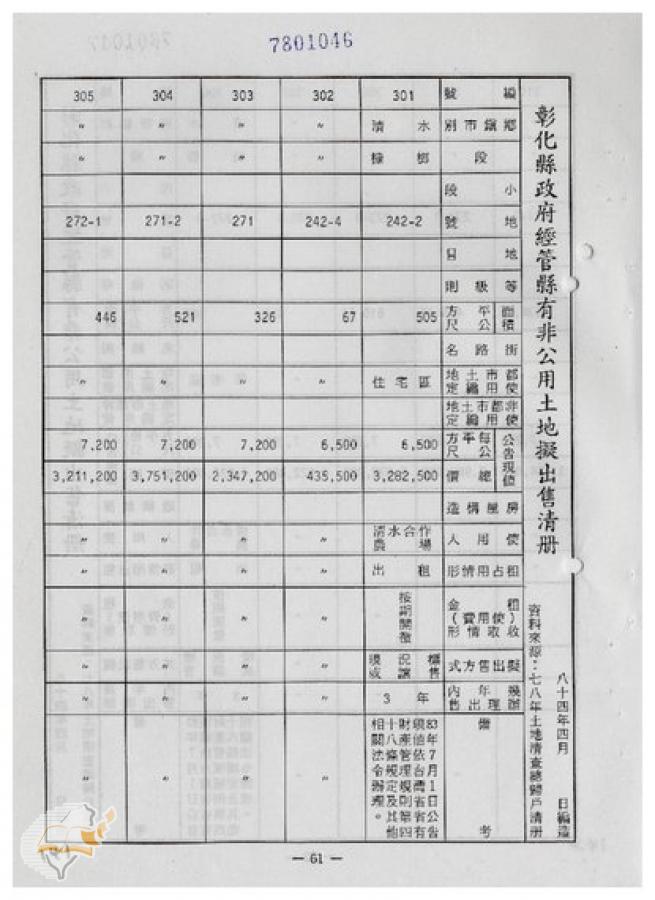 7801046
彰化縣政府經管縣有非公用土地擬出售清册
資料來源：七八年土地清查總歸戶清册
八十四年四月　日編造
編號 301 302 303 304 305
鄉鎮市別 清水 〃 〃 〃 〃
段 槺榔 〃 〃 〃 〃
小段
地號 242-2 242-4 271 271-2 272-1
地目
等級則
面積 平方公尺 505 67 326 521 446
街路名
都市土地使用編定 住宅區 〃 〃 〃 〃
非都市土地使用編定
公告現值 每平方公尺 6,500 6,500 7,200 7,200 7,200
總價 3,282,500 435,500 2,347,200 3,751,200 3,211,200
房屋構造
使用人 清水合作農場 〃 〃 〃 〃
租占用情形 出租 〃 〃 〃 〃
租金(使用費)收取情形 按期開徵 〃 〃 〃 〃
擬出售方式 標售 現況 讓 或 〃 〃 〃 〃
幾年內辦理出售 3年 〃 〃 〃 〃
備考 83年7月1日公告現值依台灣省省有財產管理規則第四十八條規定及其他相關法令辦理。 〃 〃 〃 〃
— 61 —